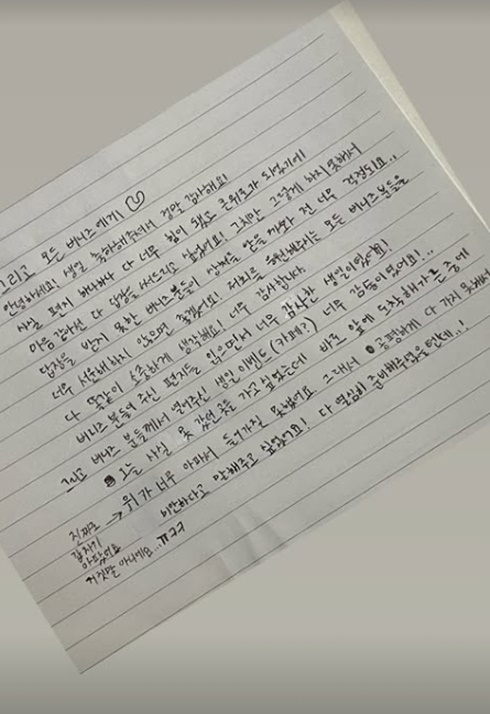 그리고 모든 버니즈에게! ♡
안녕하세요! 생일 축하해주셔서 정말 감사해요!
사실 편지 하나하나 다 너무 힘이 됐고 큰 위로가 되었기에
마음같아선 다 답장을 써드리고 싶었어요! 그치만 그렇게 하지 못해서
답장을 받지 못한 버니즈분들이 상처를 받을까봐 전 너무 걱정되요..
너무 서운해하지 않으면 좋겠어요! 저희를 응원해주는 모든 버니즈분들을
다 똑같이 소중하게 생각해요! 너무 감사합니다.
버니즈 분들이 주신 편지들을 읽으면서 너무 감사한 생일이었어요!
그리고 버니즈 분들께서 열어주신 생일 이벤트(카페?) 너무 감동이었어요!..
오늘 사실 못 갔던 곳을 가고 싶었는데 바로 앞에 도착해가는 중에
진짜로 → 위가 너무 아파서 들어가질 못했어요 그래서 공평하게 다 가지 못해서
갑자기 미안하다고 말해주고 싶었어요! 다 열심히 준비해주셨을텐데..!
아팠어요
거짓말 아니에요..ㅠㅋㅋ